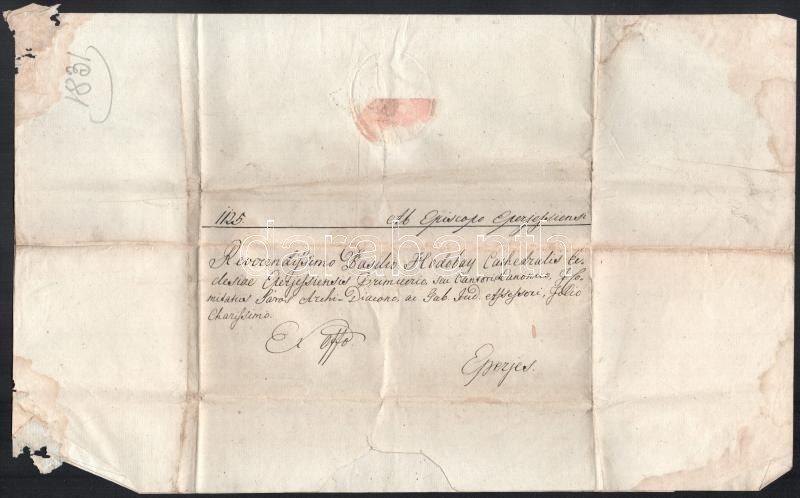 1831
1125. Ab Episcopo Eperjessiensi
Reverendissimo Basilio Hodobay Cathedralis Ec-
clesiae Eperjessiensis Primicerio, seu Cantori Canonico, I. Co-
mitatus Sáros Archi-Diacono, ac Tab. Jud. Assessori, Filio
Charissimo.
Ex Offo.
Eperjes.
Darabanth